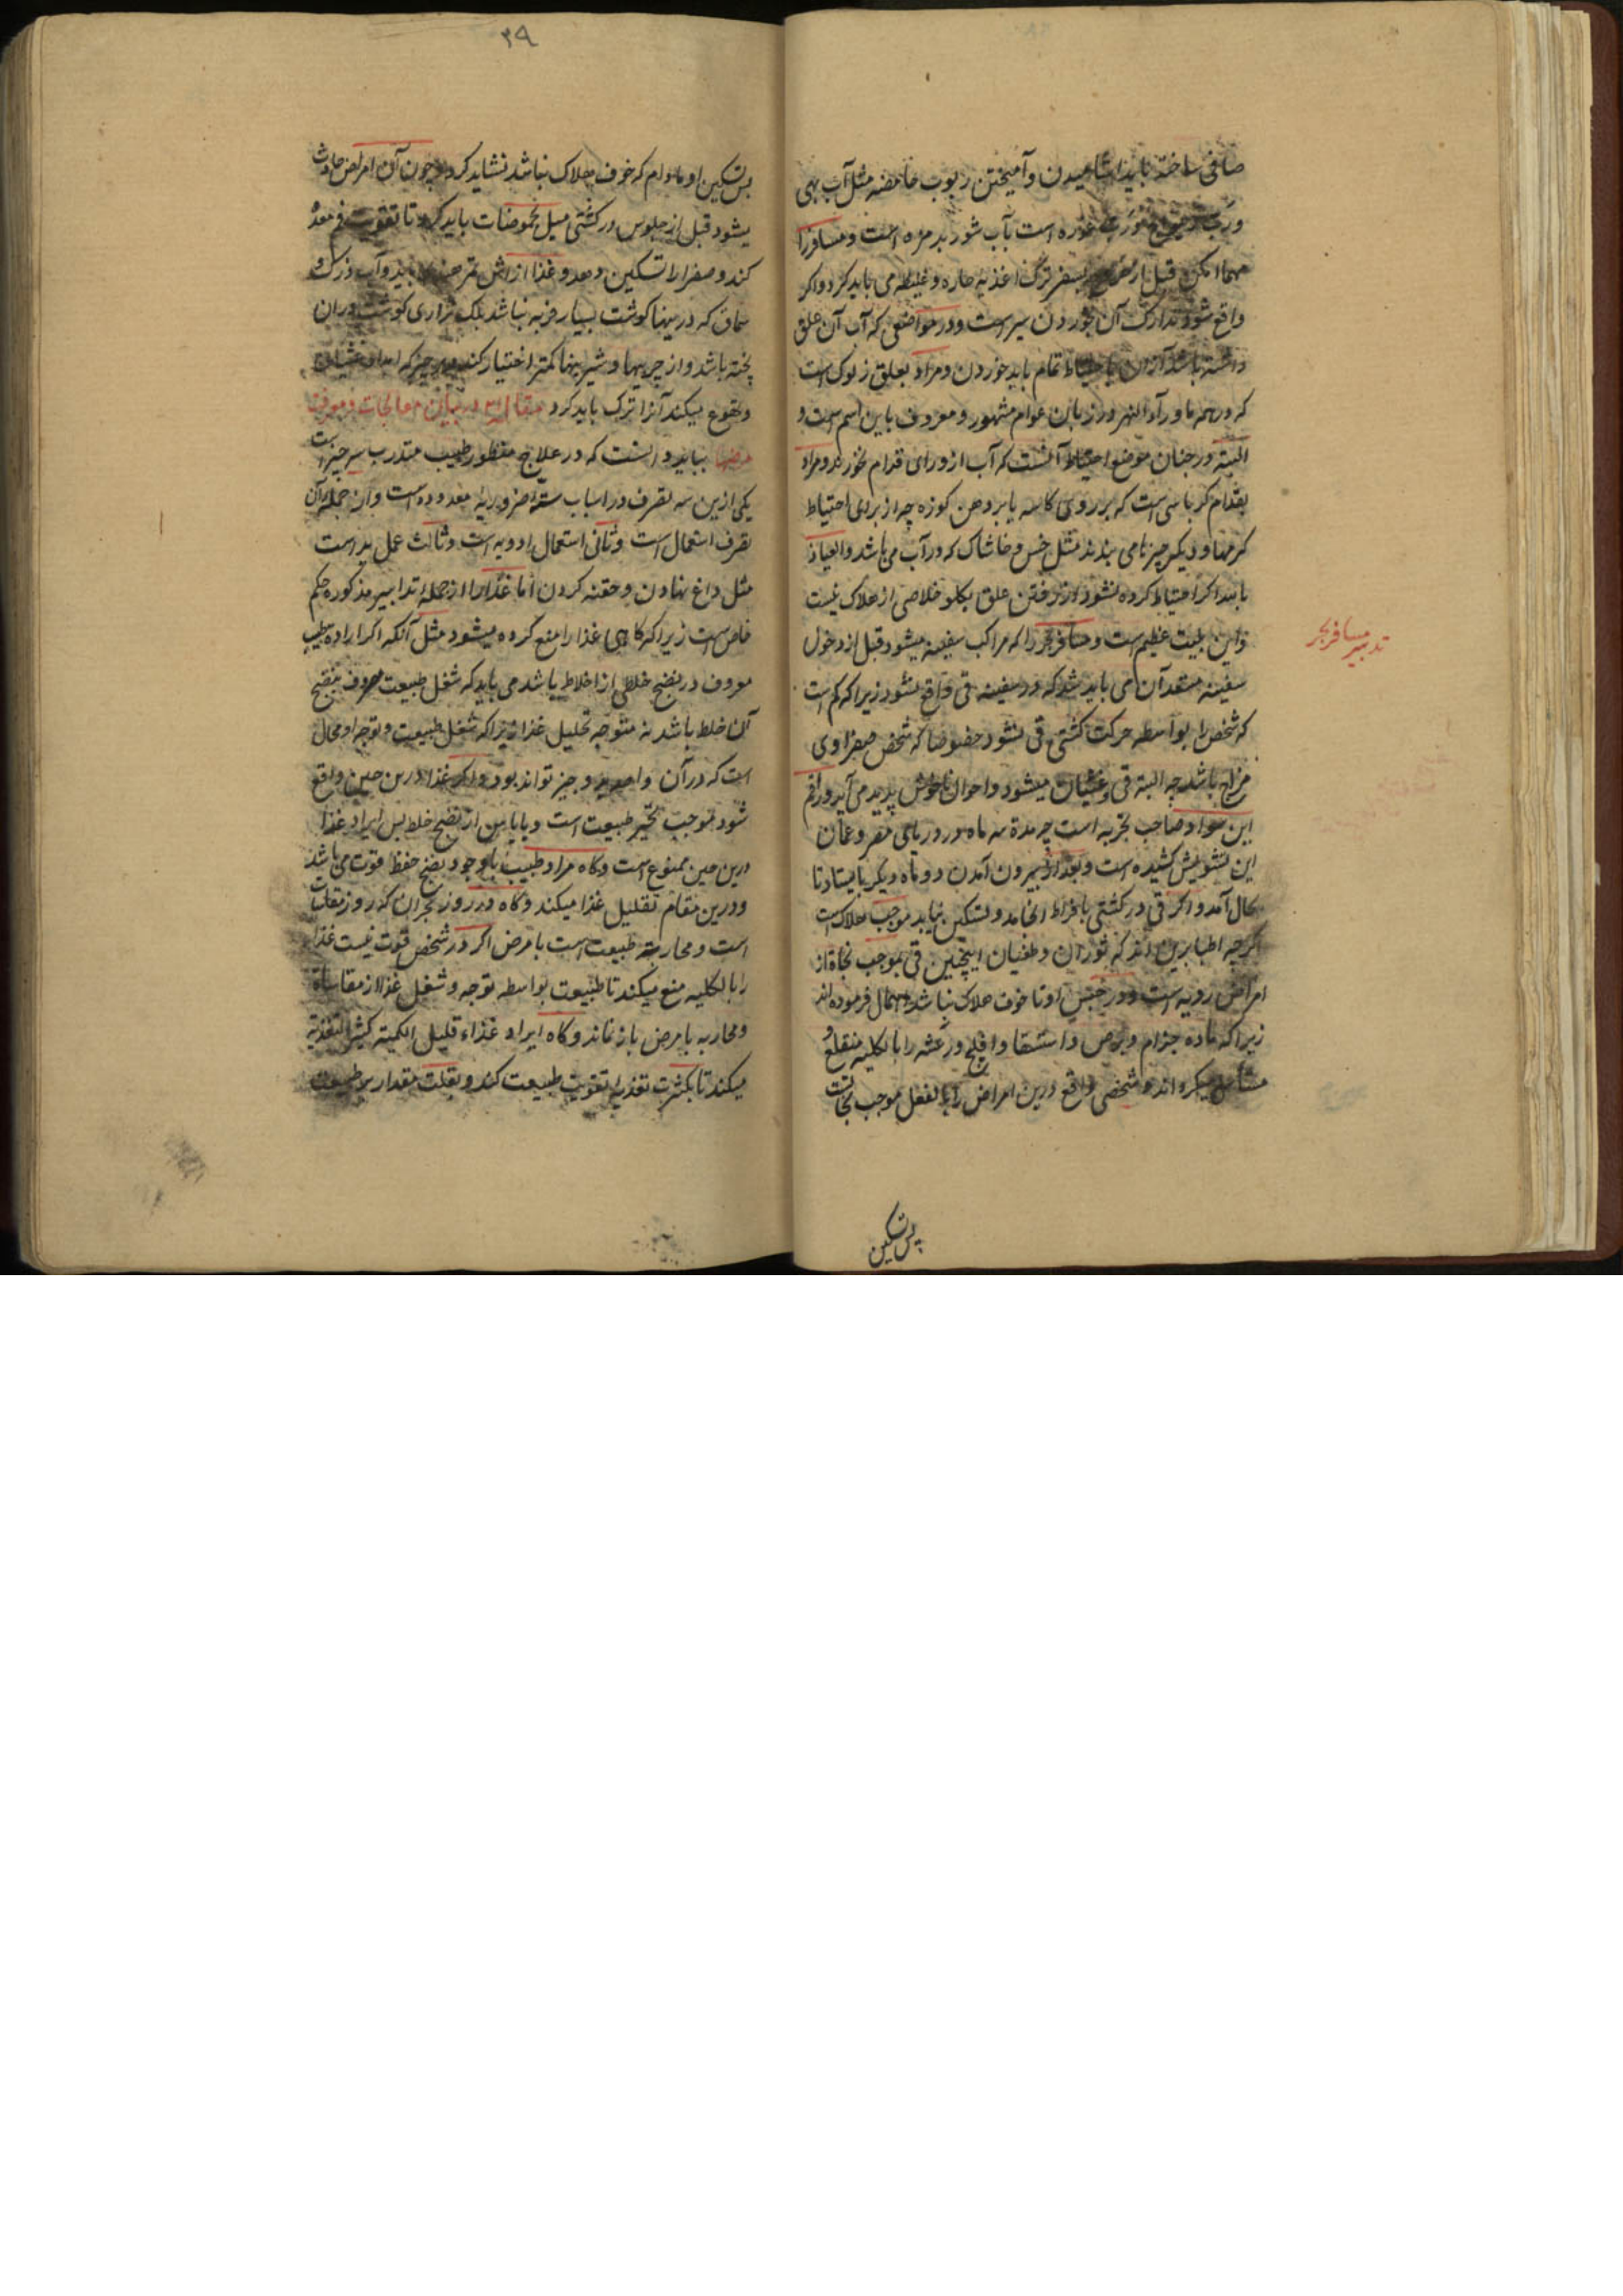 صافی ساخته باید آشامیدن و آمیختن ربوب حامضه مثل آب بهی
غوره است بآب شور بد مزه است و مسافر را
مهما امکن قبل از بسفر ترک اغذیه حاره و غلیظه می باید کرد و اکر
واقع شود تدارک آن بخوردن سیر است و در مواضعی که آب آن علق
داشته باشد از آن باحتیاط تمام باید خوردن و مراد بعلق زلوک است
که در همه ماورآءالنهر در زبان عوام مشهور و معروف باین اسم است و
البته در چنان موضع احتیاط آنست که آب از ورای قدام بخورند و مراد
بقدام کرباسی است که بر روی کاسه یا بر دهن کوزه چه از برای احتیاط
کرمها و دیکر چیزها می بندند مثل خس و خاشاک که در آب می باشد و العیاذ
بالله اکر احتیاط کرده نشود از فرو رفتن علق بکلو خلاصی از هلاک نیست
و این بلیت عظیم است و مسافر بحر را که مراکب سفینه میشود قبل از دخول
سفینه مستعد آن می باید شد که در سفینه قی واقع نشود زیرا که کم است
که شخص را بواسطه حرکت کشتی قی نشود خصوصا که شخص صفراوی
مزاج باشد چه البته قی و غثیان میشود و احوال ناخوش پدید می آید و راقم
این سواد صاحب تجربه است چه مدة سه ماه در دریای مصر و عمان
این تشویش کشیده است و بعد از بیرون آمدن دو ماه دیکر بایستاد تا
بحال آمد و اکر قی در کشتی بافراط انجامد و تسکین نیابد موجب هلاک است
اکرچه اطبا برین اند که ثوران و طغیان اینچنین قی موجب نجاة از
امراض ردیه است و در حبس او تا خوف هلاک نباشد اهمال فرموده اند
زیرا که ماده جذام و برص و استسقا و فالج و رعشه را بالکلیه منقلع و
مستأصل میکرداند و شخصی واقع درین امراض را بالفعل موجب نجاتست
پس تسکین
تدبیر مسافر بحر
۳۹
پس تسکین او مادام که خوف هلاک نباشد نشاید کرد و چون آن امراض حادث
میشود قبل از جلوس در کشتی میل بحموضات باید کرد تا تقویت فم معده
کند و صفرا را تسکین دهد و غذا از آش تمر هندی باید و آب زرشک و
سماق که درینها کوشت بسیار فربه نباشد بلکه نزاری کوشت در آن
پخته باشد و از چربیها و شیرینیها کمتر اختیار کند و هر چیز که امداد غثیان
و تهوع میکند آنرا ترک باید کرد مقاله در بیان معالجات و معرفت
مرضها بباید دانست که در علاج منظور طبیب متدرب سه چیز است
یکی ازین سه تصرف در اسباب سته ضروریه معدوده است و از جمله آن
تصرف استعمال است و ثانی استعمال ادویه است و ثالث عمل ید است
مثل داغ نهادن و حقنه کردن اما غذا را از جمله تدابیر مذکوره حکم
خاص است زیرا که کاهی غذا را منع کرده میشود مثل آنکه اکر اراده طبیب
معروف در نضج خلطی از اخلاط باشد می باید که شغل طبیعت مصروف بنضج
آن خلط باشد نه متوجه تحلیل غذا زیرا که شغل طبیعت و توجه او محال
است که در آن واحد بدو چیز تواند بود و اکر غذا درین حین واقع
شود موجب تحیر طبیعت است و باز پس از نضج خلط پس ایراد غذا
درین حین ممنوع است و کاه مراد طبیب با وجود نضج حفظ قوت می باشد
و درین مقام تقلیل غذا میکند و کاه در روز بحران که روز تقلب
است و محاربه طبیعت است با مرض اکر در شخص قوت نیست غذا
را بالکلیه منع میکند تا طبیعت بواسطه توجه و شغل غذا از مقاساة
و محاربه با مرض باز نماند و کاه ایراد غذاء قلیل الکمیة کثیر التغذیه
میکند تا بکثرت تغذیه تقویت طبیعت کند و بقلت مقدار بر طبیعت